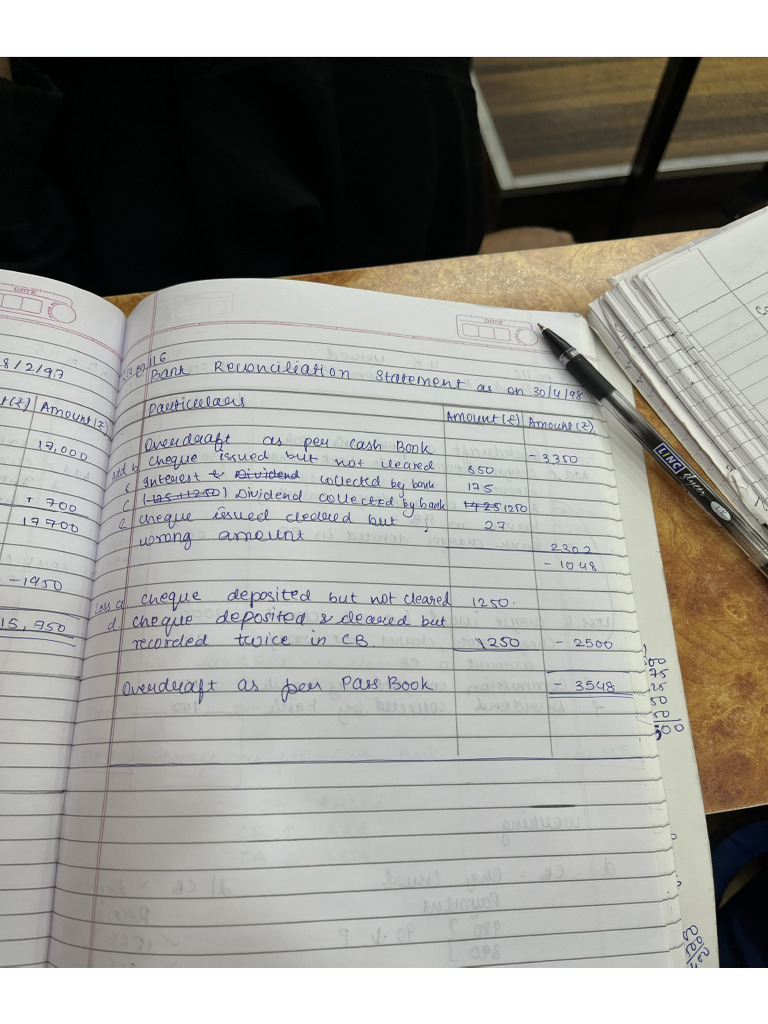 DATE
8/2/97
t(₹) Amount(₹)
17,000
+ 700
17700
-1950
15,750
DATE
116
Bank Reconciliation Statement as on 30/4/98
Particulars Amount(₹) Amount(₹)
Overdraft as per cash Book - 3350
Add b cheque issued but not cleared 850
c Interest & Dividend collected by bank 175
c (175+1250) Dividend collected by bank 1425 1250
e cheque issued cleared but 27
wrong amount 2302
- 1048
Less a cheque deposited but not cleared 1250.
d cheque deposited & cleared but
recorded twice in CB. 1250 - 2500
Overdraft as per Pass Book - 3548
LINC